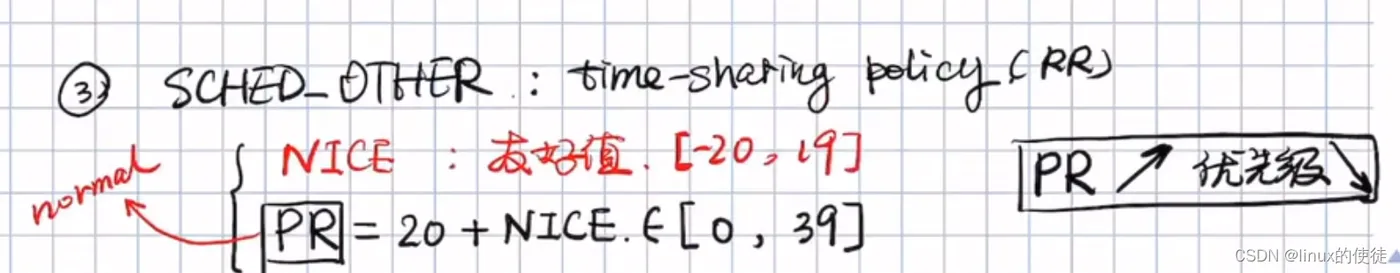 ③ SCHED_OTHER : time-sharing policy (RR)
NICE : 友好值. [-20, 19]
normal
PR = 20 + NICE. ∈ [0, 39]
PR ↗ 优先级 ↘
CSDN @linux的使徒